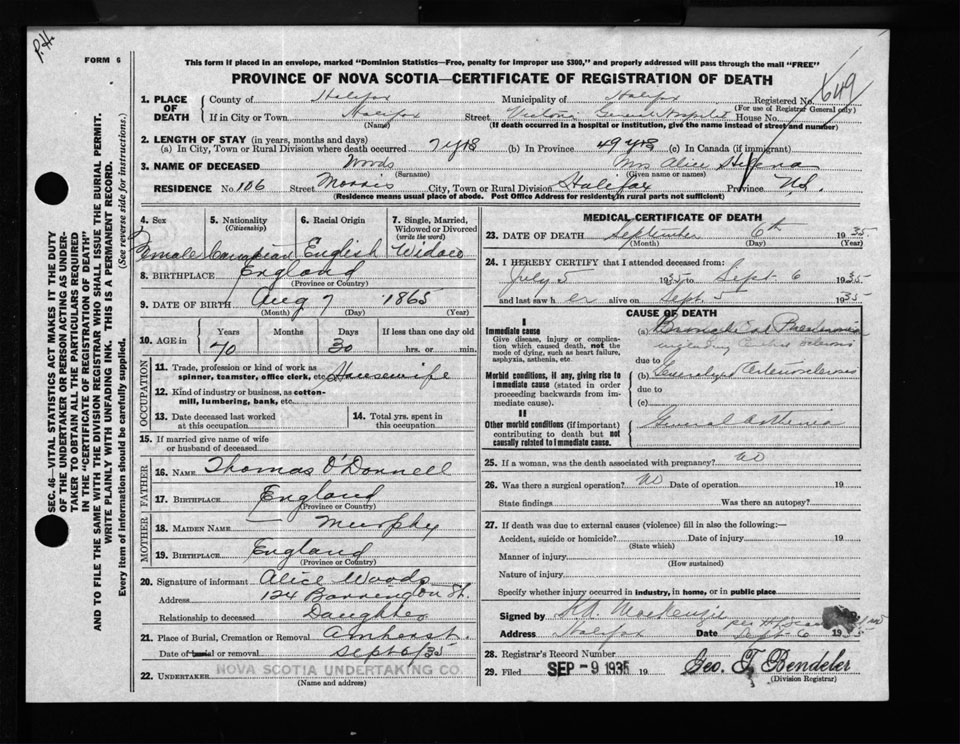 P.H.
FORM 6
This form if placed in an envelope, marked "Dominion Statistics—Free, penalty for improper use $300," and properly addressed will pass through the mail "FREE"
PROVINCE OF NOVA SCOTIA—CERTIFICATE OF REGISTRATION OF DEATH
649
SEC. 46—VITAL STATISTICS ACT MAKES IT THE DUTY
OF THE UNDERTAKER OR PERSON ACTING AS UNDER-
TAKER TO OBTAIN ALL THE PARTICULARS REQUIRED
IN THE "CERTIFICATE OF REGISTRATION OF DEATH"
AND TO FILE THE SAME WITH THE DIVISION REGISTRAR WHO SHALL ISSUE THE BURIAL PERMIT.
WRITE PLAINLY WITH UNFADING INK. THIS IS A PERMANENT RECORD.
Every item of information should be carefully supplied. (See reverse side for instructions.)
1. PLACE OF DEATH County of Halifax Municipality of Halifax Registered No.
(For use of Registrar General only)
If in City or Town Halifax Street Victoria General Hospital House No.
(Name) (If death occurred in a hospital or institution, give the name instead of street and number)
2. LENGTH OF STAY (in years, months and days)
(a) In City, Town or Rural Division where death occurred 7 yrs (b) In Province 49 yrs (c) In Canada (if immigrant)
3. NAME OF DECEASED Woods Mrs Alice
(Surname) (Given name or names)
RESIDENCE No. 106 Street Morris City, Town or Rural Division Halifax Province N.S.
(Residence means usual place of abode. Post Office Address for residents in rural parts not sufficient)
4. Sex 5. Nationality (Citizenship) 6. Racial Origin 7. Single, Married, Widowed or Divorced (write the word)
Female Canadian English Widow
8. BIRTHPLACE England
(Province or Country)
9. DATE OF BIRTH Aug 7 1865
(Month) (Day) (Year)
10. AGE in Years Months Days If less than one day old
70 30 hrs. or min.
OCCUPATION
11. Trade, profession or kind of work as spinner, teamster, office clerk, etc. Housewife
12. Kind of industry or business, as cotton-mill, lumbering, bank, etc.
13. Date deceased last worked at this occupation 14. Total yrs. spent in this occupation
15. If married give name of wife or husband of deceased
FATHER
16. NAME Thomas O'Donnell
17. BIRTHPLACE England
(Province or Country)
MOTHER
18. MAIDEN NAME — Murphy
19. BIRTHPLACE England
(Province or Country)
20. Signature of informant Alice Woods
Address 124 Barrington St.
Relationship to deceased Daughter
21. Place of Burial, Cremation or Removal Amherst.
Date of burial or removal Sept 6/35
22. UNDERTAKER NOVA SCOTIA UNDERTAKING CO.
(Name and address)
MEDICAL CERTIFICATE OF DEATH
23. DATE OF DEATH September 6th 1935
(Month) (Day) (Year)
24. I HEREBY CERTIFY that I attended deceased from:
July 5 1935 to Sept. 6 1935
and last saw her alive on Sept. 5 1935
CAUSE OF DEATH
I
Immediate cause
Give disease, injury or complication which caused death, not the mode of dying, such as heart failure, asphyxia, asthenia, etc.
(a) Bronchial Pneumonia
due to
Morbid conditions, if any, giving rise to immediate cause (stated in order proceeding backwards from immediate cause).
(b) Generalized Arteriosclerosis
due to
(c)
II
Other morbid conditions (if important) contributing to death but not causally related to immediate cause.
General Asthenia
25. If a woman, was the death associated with pregnancy? no
26. Was there a surgical operation? no Date of operation 19
State findings Was there an autopsy?
27. If death was due to external causes (violence) fill in also the following:—
Accident, suicide or homicide? Date of injury 19
(State which)
Manner of injury
(How sustained)
Nature of injury
Specify whether injury occurred in industry, in home, or in public place
Signed by MacKenzie
Address Halifax Date Sept-6 1935
28. Registrar's Record Number
29. Filed SEP - 9 1935 19 Geo. T. Bendeler
(Division Registrar)